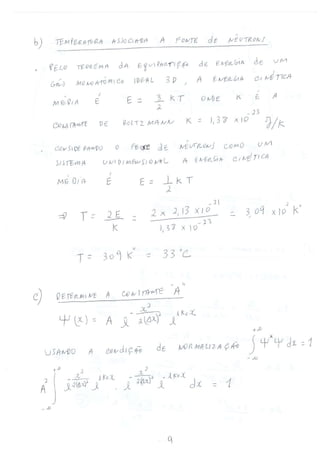 b) TEMPERATURA ASSOCIADA A FONTE DE NÊUTRONS
• PELO TEOREMA DA EQUIPARTIÇÃO DE ENERGIA DE UM
GÁS MONOATÔMICO IDEAL 3D, A ENERGIA CINÉTICA
MÉDIA É E = 3/2 KT ONDE K É A
CONSTANTE DE BOLTZMANN K = 1,38 x 10^-23 J/K
• CONSIDERANDO O DE NÊUTRONS COMO UM
SISTEMA UNIDIMENSIONAL A ENERGIA CINÉTICA
MÉDIA É E = 1/2 KT
⇒ T = 2E/K = 2 x 2,13 x 10^-21 / 1,38 x 10^-23 = 3,09 x 10^2 K°
T = 309 K° = 33 °C
c) DETERMINE A CONSTANTE "A"
Ψ(x) = A e^(-x²/2(Δx)²) e^(iK₀x)
USANDO A CONDIÇÃO DE NORMALIZAÇÃO ∫_{-∞}^{+∞} Ψ*Ψ dx = 1
A² ∫_{-∞}^{+∞} e^(-x²/2(Δx)²) e^(iK₀x) · e^(-x²/2(Δx)²) e^(-iK₀x) dx = 1
9